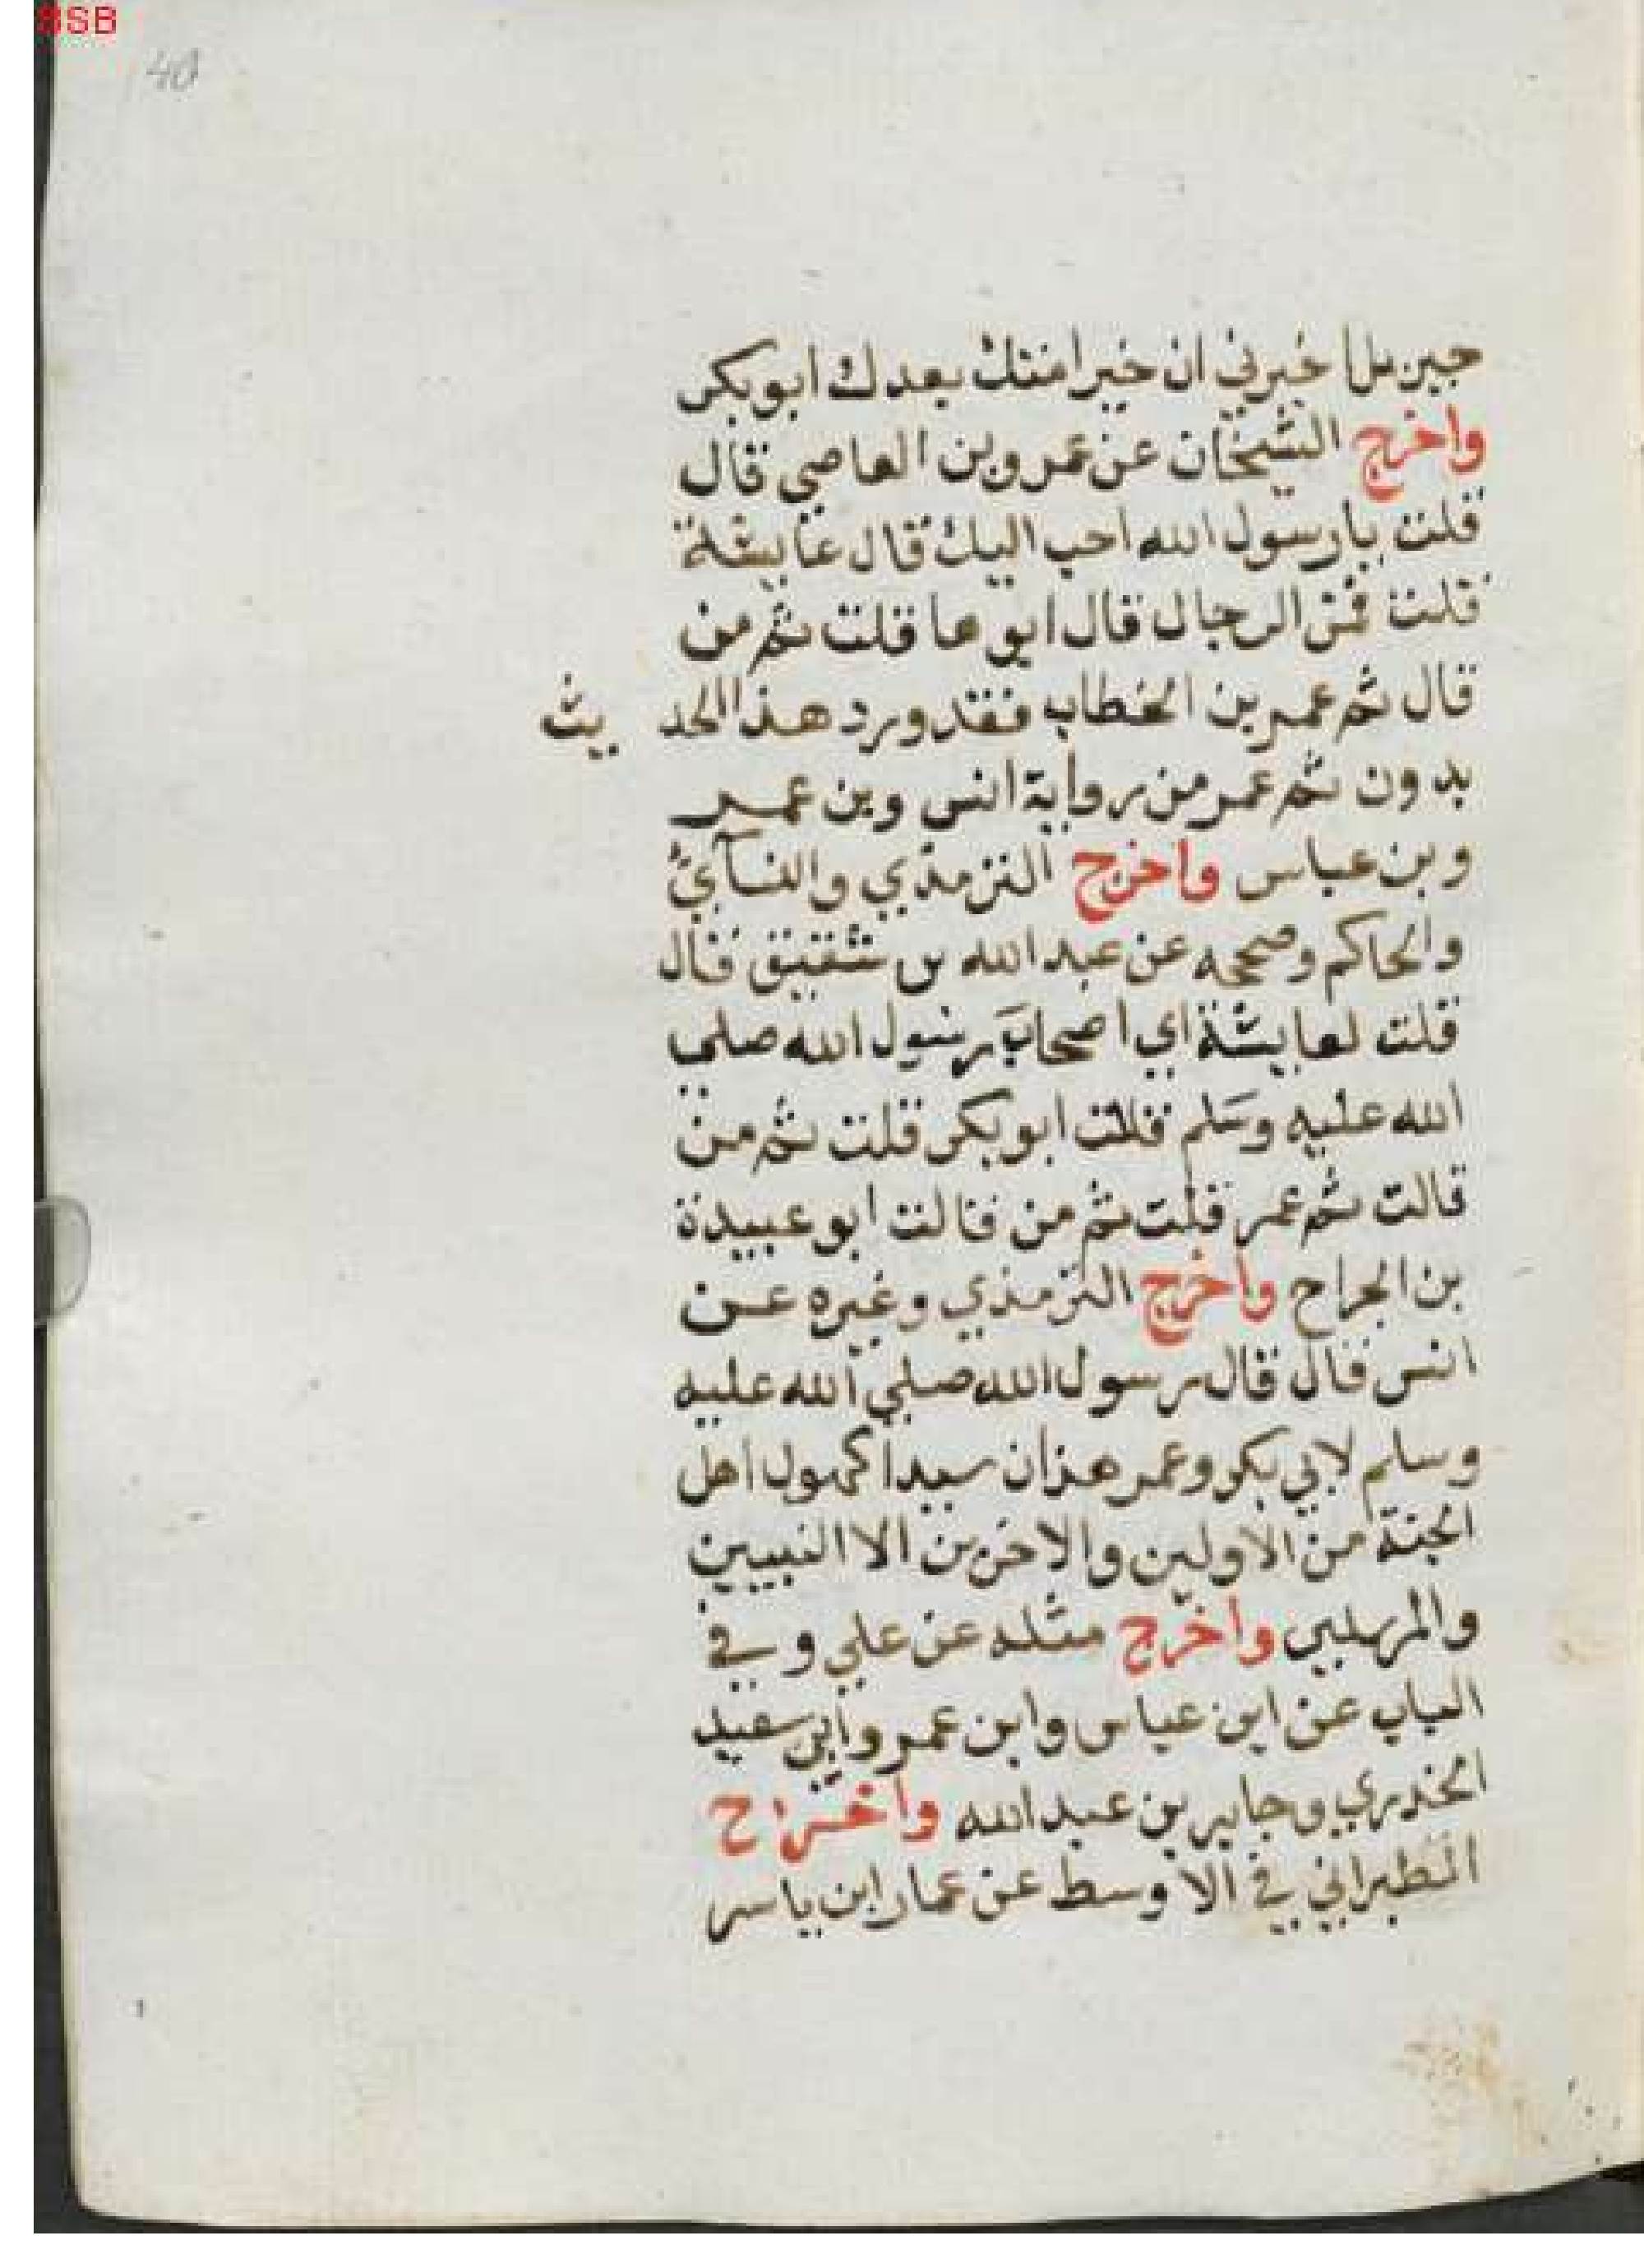 BSB
40
جبريل اخبرني ان خير امتك بعدك ابو بكر
واخرج الشيخان عن عمرو بن العاصي قال
قلت يا رسول الله احب اليك قال عايشة
قلت فمن الرجال قال ابوها قلت ثم من
قال ثم عمر بن الخطاب فقد ورد هذا الحديث
بدون ثم عمر من رواية انس وبن عمر
وبن عباس واخرج الترمذي والنسآئ
والحاكم وصححه عن عبد الله بن شقيق قال
قلت لعايشة اي اصحاب رسول الله صلي
الله عليه وسلم قلت ابو بكر قلت ثم من
قالت ثم عمر قلت ثم من قالت ابو عبيدة
بن الجراح واخرج الترمذي وغيره عن
انس قال قال رسول الله صلي الله عليه
وسلم لابي بكر وعمر هذان سيدا كهول اهل
الجنة من الاولين والاخرين الا النبيين
والمرسلين واخرج مثله عن علي وفي
الباب عن ابن عباس وابن عمر وابي سعيد
الخدري وجابر بن عبد الله واخرج
الطبراني في الاوسط عن عمار ابن ياسر